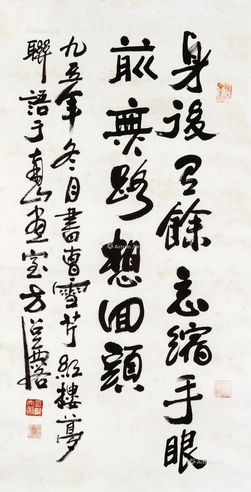 身後有餘忘縮手眼
前無路想回頭
九五年冬月書曹雪芹紅樓夢
聯語于南山畫室方